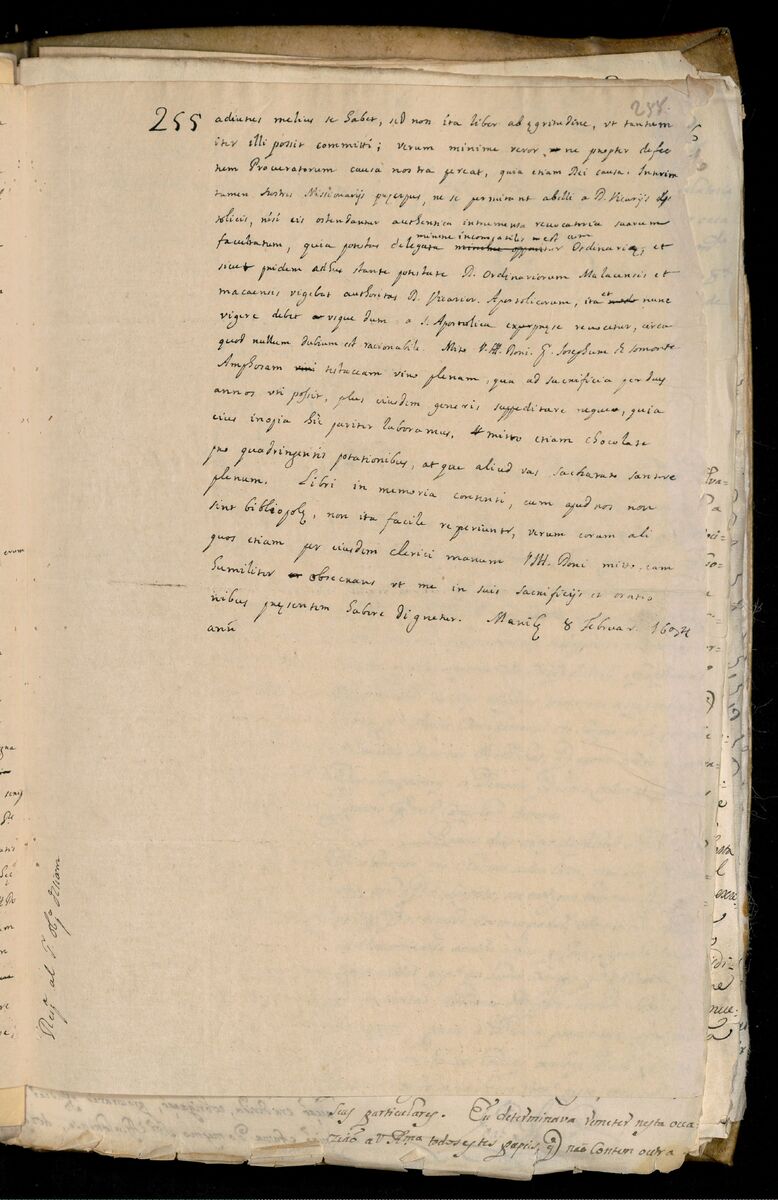 255
255.
adiutus melius se habet, sed non ita liber ab ęgritudine, vt tantum
iter illi possit committi; verum minime veror, ne propter defec
tum Procuratorum causa nostra pereat, quia etiam Dei causa. Interim
tamen Nostris Missionarijs pręcepus, ne se permittant abesse a D. Vicarijs Apos
tolicis, nisi eis ostendantur authentica intrumenta reuocatoria suarum
facultatum, quia potestas delegata minime incompatibilis est cum Ordinaria, et
sicut quidem adhuc stante potestate D. Ordinariorum Malacensis et
macaensis vigebat authoritas D. Vicarior. Apostolicorum, ita et nunc
vigere debet vsque dum a S. Apostolica expręse reuocetur, circa
quod nullum dubium est racionabile. Mitto Doni. Josephum de
Amphoram testaceam vino plenam, qua ad sacrificia per duos
annos vti possit, plus eiusdem generis suppeditare nequeo, quia
eius inopia hic pariter laboramus, mitto etiam chocolate
pro quadringentis potationibus, atque aliud vas saccharato
plenum. Libri in memoria contenti, cum apud nos non
sint bibliopolę, non ita facile reperiuntr, verum eorum ali
quos etiam per eiusdem clerici manum Doni mitto, eam
humiliter obsecrans vt me in suis sacrificijs et oratio
nibus pręsentem habere dignetur. Manilę 8 Februar. 1694
anñ
al
seus particulares. Eu determinava remeter nesta occa
zião a V Rma todos estes papeis, não Contem outra